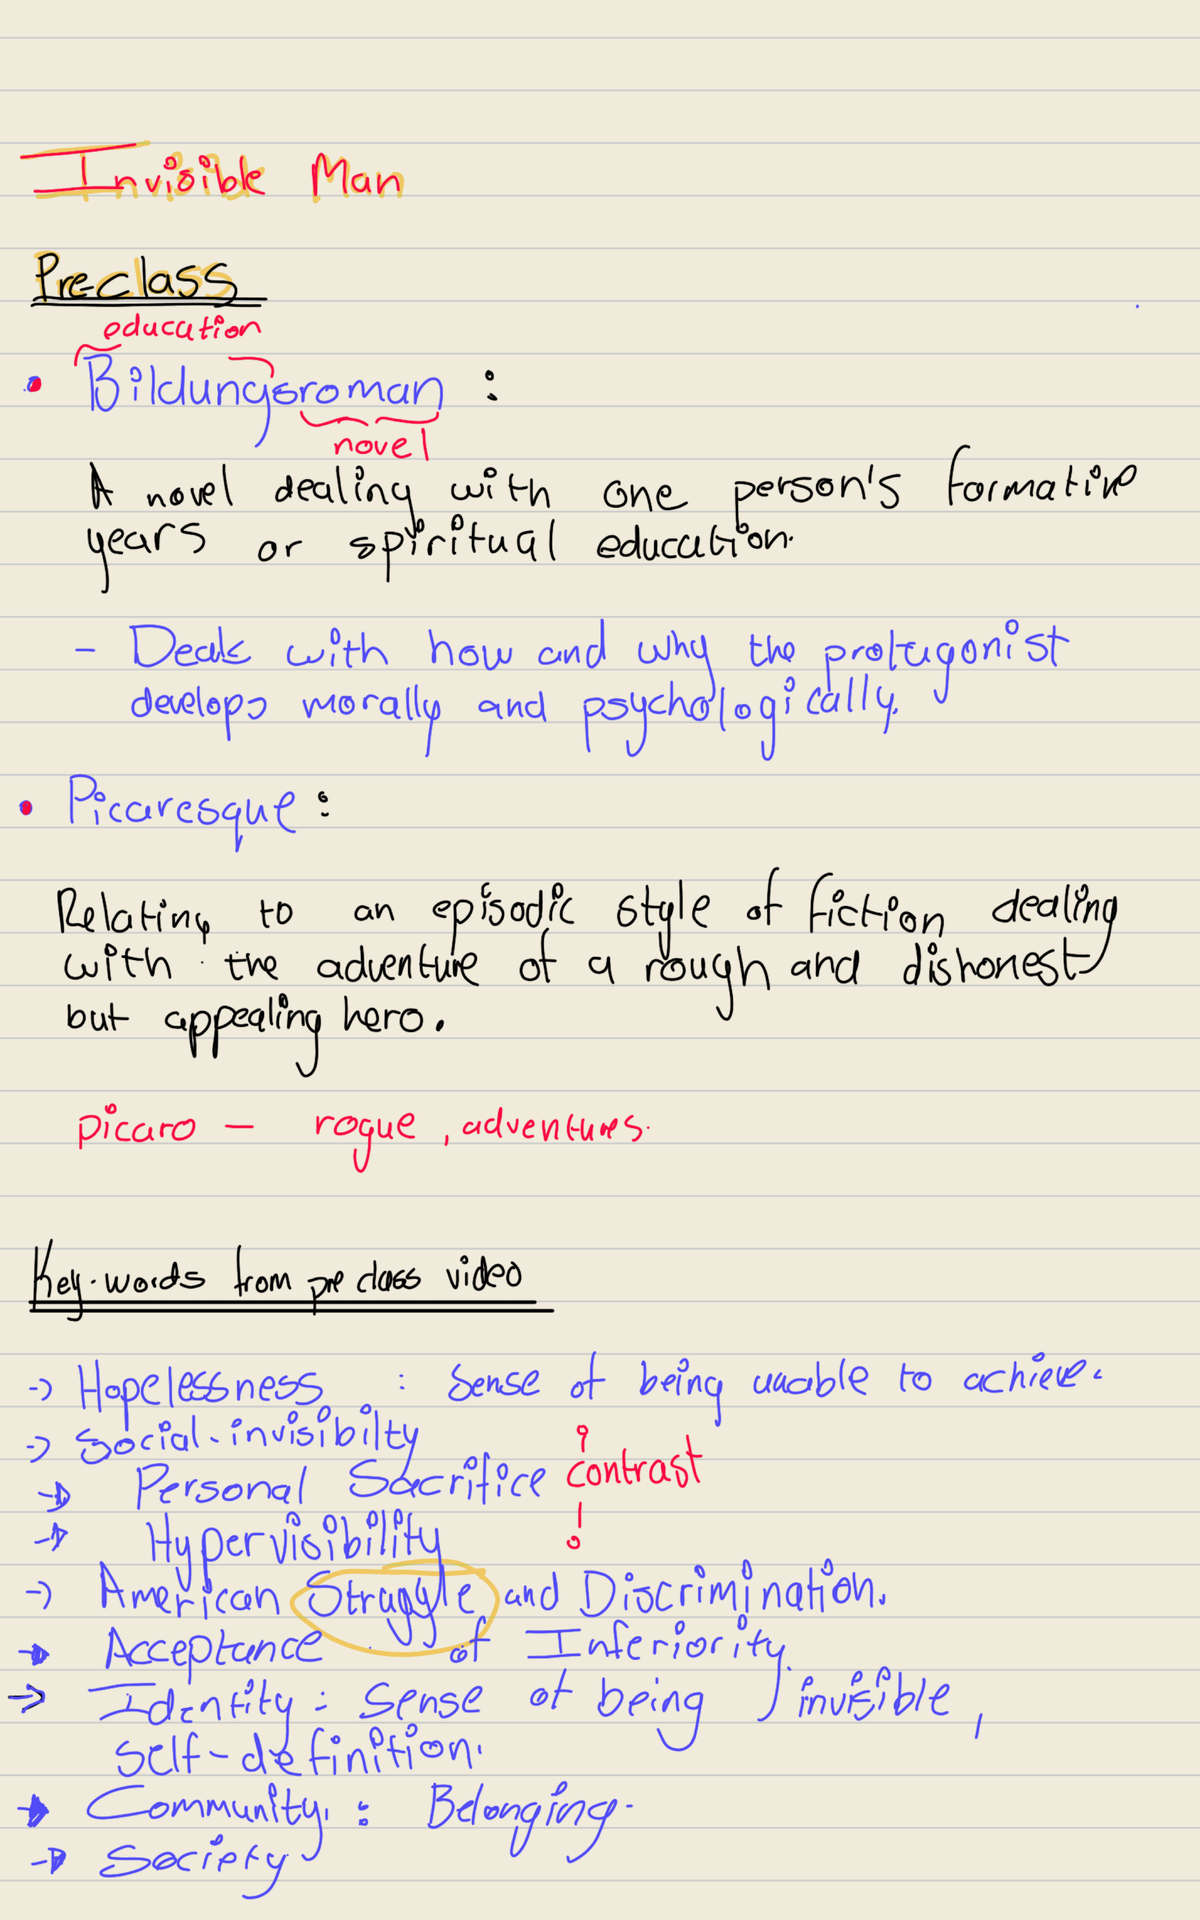 Invisible Man
Preclass
education
• Bildungsroman :
novel
A novel dealing with one person's formative
years or spiritual education.
- Deals with how and why the protagonist
develops morally and psychologically.
• Picaresque :
Relating to an episodic style of fiction dealing
with the adventure of a rough and dishonest
but appealing hero.
picaro - rogue, adventures.
Key-words from pre class video
-> Hopelessness : Sense of being unable to achieve.
-> Social-invisibilty
-> Personal Sacrifice contrast
-> Hypervisibility
-> American Struggle and Discrimination.
-> Acceptance of Inferiority.
-> Identity : Sense of being invisible,
self-definition.
-> Community : Belonging.
-> Society